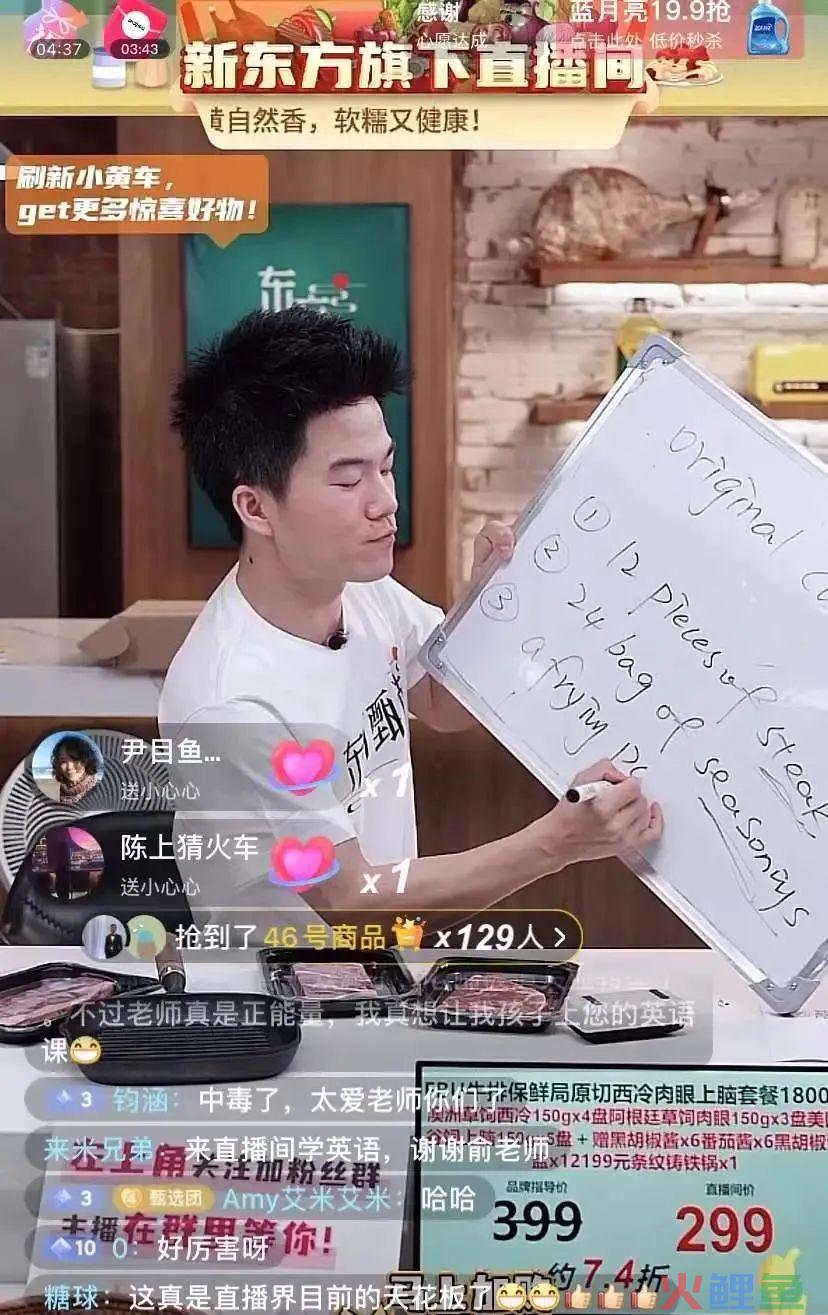 04:37
03:43
感谢
心愿达成
蓝月亮19.9抢
点击此处 低价秒杀
新东方旗下直播间
黄自然香，软糯又健康！
刷新小黄车，
get更多惊喜好物！
东
original
① 12 pieces of steak
② 24 bag of seasonings
③ a frying pa
甄
尹目鱼...
送小心心
x 1
陈上猜火车
送小心心
x 1
抢到了46号商品 x129人 >
。不过老师真是正能量，我真想让我孩子上您的英语
课😁
3 钧涵：中毒了，太爱老师你们了
来米兄弟：来直播间学英语，谢谢俞老师
3 甄选团 Amy艾米艾米：哈哈
10 0：好厉害呀
糖球：这真是直播界目前的天花板了😁😁👍👍👍
左上角关注加粉丝群
主播在群里等你！
牛排保鲜局原切西冷肉眼上脑套餐1800
澳洲草饲西冷150gx4盘阿根廷草饲肉眼150gx3盘美国
谷饲上脑150gx5盘 + 赠黑胡椒酱x6番茄酱x6黑胡椒
x12199元条纹铸铁锅x1
品牌指导价
直播间价
399
299
约7.4折
火鲤鱼